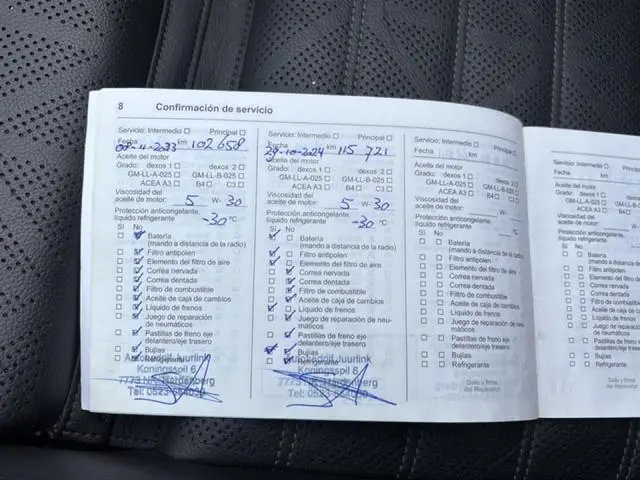 8 Confirmación de servicio
Servicio: Intermedio Principal
Fecha 09-11-2023 km 102 658
Aceite del motor
Grado: dexos 1 dexos 2
GM-LL-A-025 GM-LL-B-025
ACEA A3 B4 C3
Viscosidad del
aceite de motor: 5 W- 30
Protección anticongelante,
líquido refrigerante -30 °C
Sí No
Batería
(mando a distancia de la radio)
Filtro antipolen
Elemento del filtro de aire
Correa nervada
Correa dentada
Filtro de combustible
Aceite de caja de cambios
Líquido de frenos
Juego de reparación
de neumáticos
Pastillas de freno eje
delantero/eje trasero
Bujías
Refrigerante
Autobedrijf Juurlink
Koningsspil 6
7773 NK Hardenberg
Servicio: Intermedio Principal
Fecha 29-10-2024 km 115 721
Aceite del motor
Grado: dexos 1 dexos 2
GM-LL-A-025 GM-LL-B-025
ACEA A3 B4 C3
Viscosidad del
aceite de motor: 5 W- 30
Protección anticongelante,
líquido refrigerante -30 °C
Sí No
Batería
(mando a distancia de la radio)
Filtro antipolen
Elemento del filtro de aire
Correa nervada
Correa dentada
Filtro de combustible
Aceite de caja de cambios
Líquido de frenos
Juego de reparación de neu-
máticos
Pastillas de freno eje
delantero/eje trasero
Bujías
Refrigerante
Autobedrijf Juurlink
Koningsspil 6
7773 NK Hardenberg
Servicio: Intermedio Principal
Fecha km
Aceite del motor
Grado: dexos 1 dexos 2
GM-LL-A-025 GM-LL-B-025
ACEA A3 B4 C3
Viscosidad del
aceite de motor: W-
Protección anticongelante,
líquido refrigerante °C
Sí No
Batería
(mando a distancia de la radio)
Filtro antipolen
Elemento del filtro de aire
Correa nervada
Correa dentada
Filtro de combustible
Aceite de caja de cambios
Líquido de frenos
Juego de reparación de neu-
máticos
Pastillas de freno eje
delantero/eje trasero
Bujías
Refrigerante
Sello y firma
del Reparador
Servicio: Intermedio Principal
Fecha km
Aceite del motor
Grado: dexos 1
GM-LL-A-025 GM-LL-B-
ACEA A3 B4
Viscosidad del
aceite de motor: W-
Protección anticongelante,
líquido refrigerante
Sí No
Batería
(mando a distancia de la
Filtro antipolen
Elemento del filtro de
Correa nervada
Correa dentada
Filtro de combustible
Aceite de caja de
Líquido de frenos
Juego de reparación
de neumáticos
Pastillas de freno
delantero/eje
Bujías
Refrigerante
Sello y firma
del Reparador